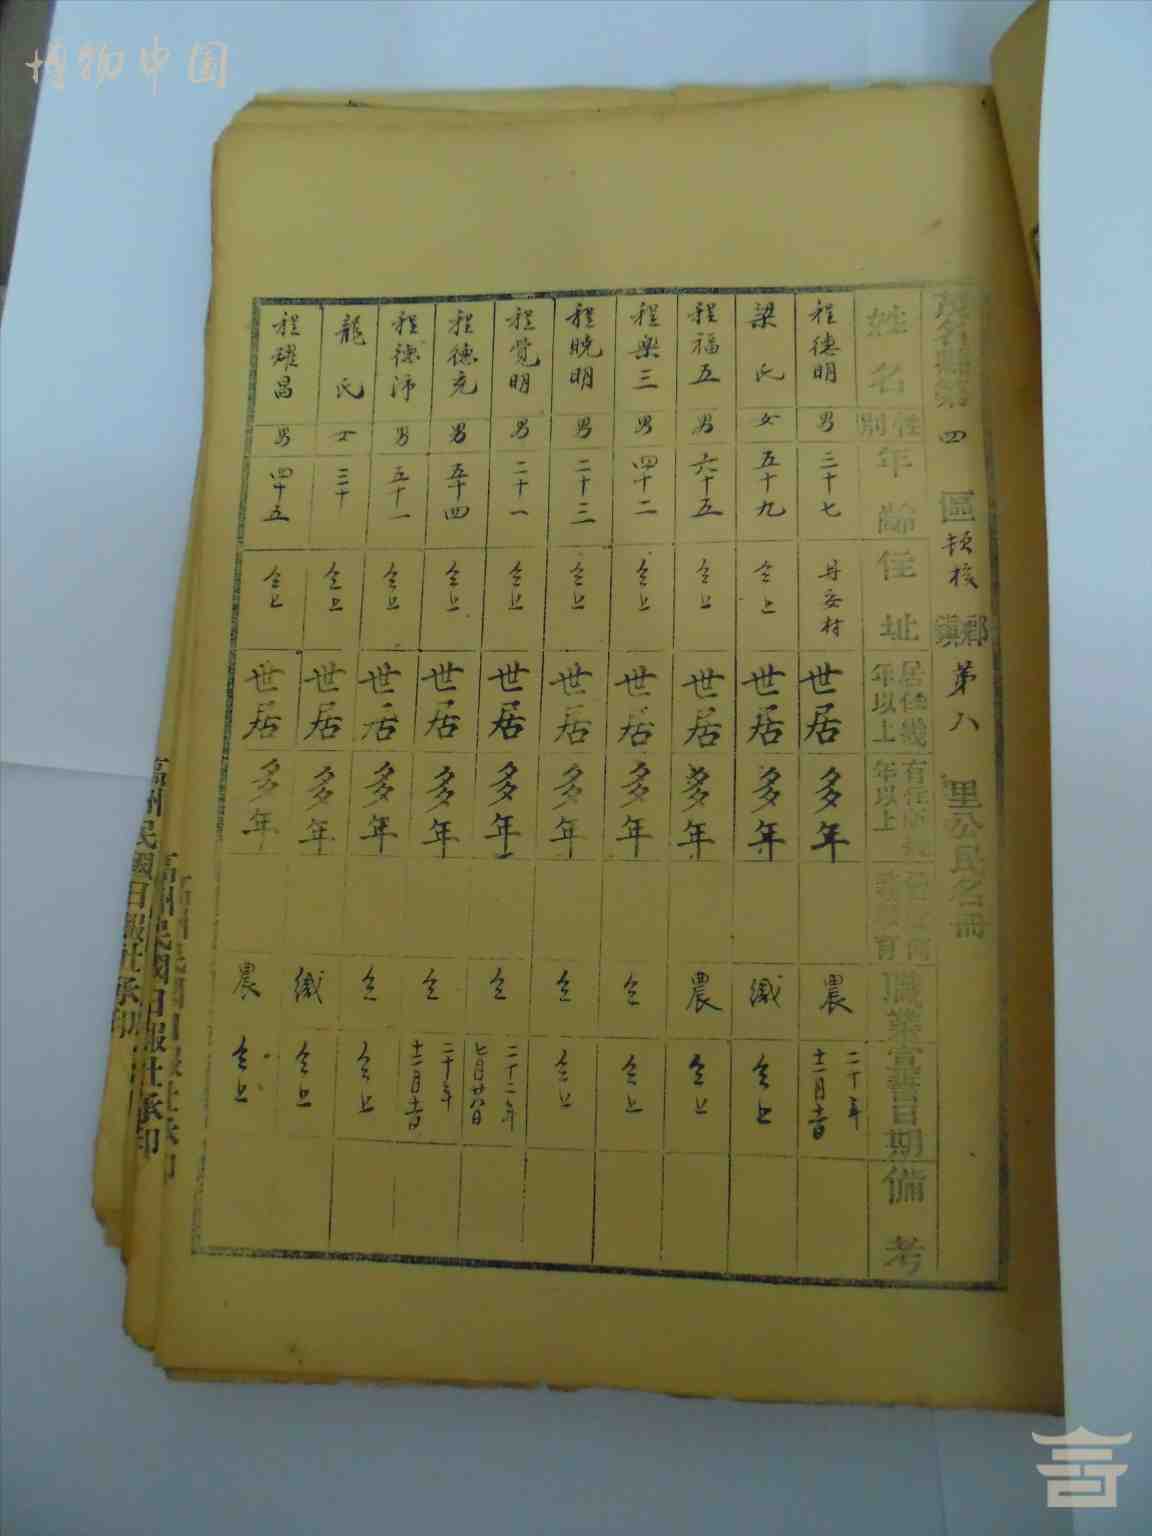 博物中国
茂名縣第四區 鄉鎮第八里公民名冊
姓名 性別 年齡 住址 居住幾年以上 有住所幾年以上 教育 職業 宣誓日期 備考
程德明 男 三十七 丹安村 世居 多年 農 二十年十二月吉
梁氏 女 五十九 仝上 世居 多年 織 仝上
程福五 男 六十五 仝上 世居 多年 農 仝上
程樂三 男 四十二 仝上 世居 多年 仝 仝上
程晚明 男 二十三 仝上 世居 多年 仝 仝上
程覺明 男 二十一 仝上 世居 多年 仝 二十二年七月廿八日
程德充 男 五十四 仝上 世居 多年 仝 二十年十二月吉
程德沛 男 五十一 仝上 世居 多年 仝 仝上
龍氏 女 三十 仝上 世居 多年 織 仝上
程耀昌 男 四十五 仝上 世居 多年 農 仝上
高州民國日報社承印
高州民國日報社承印